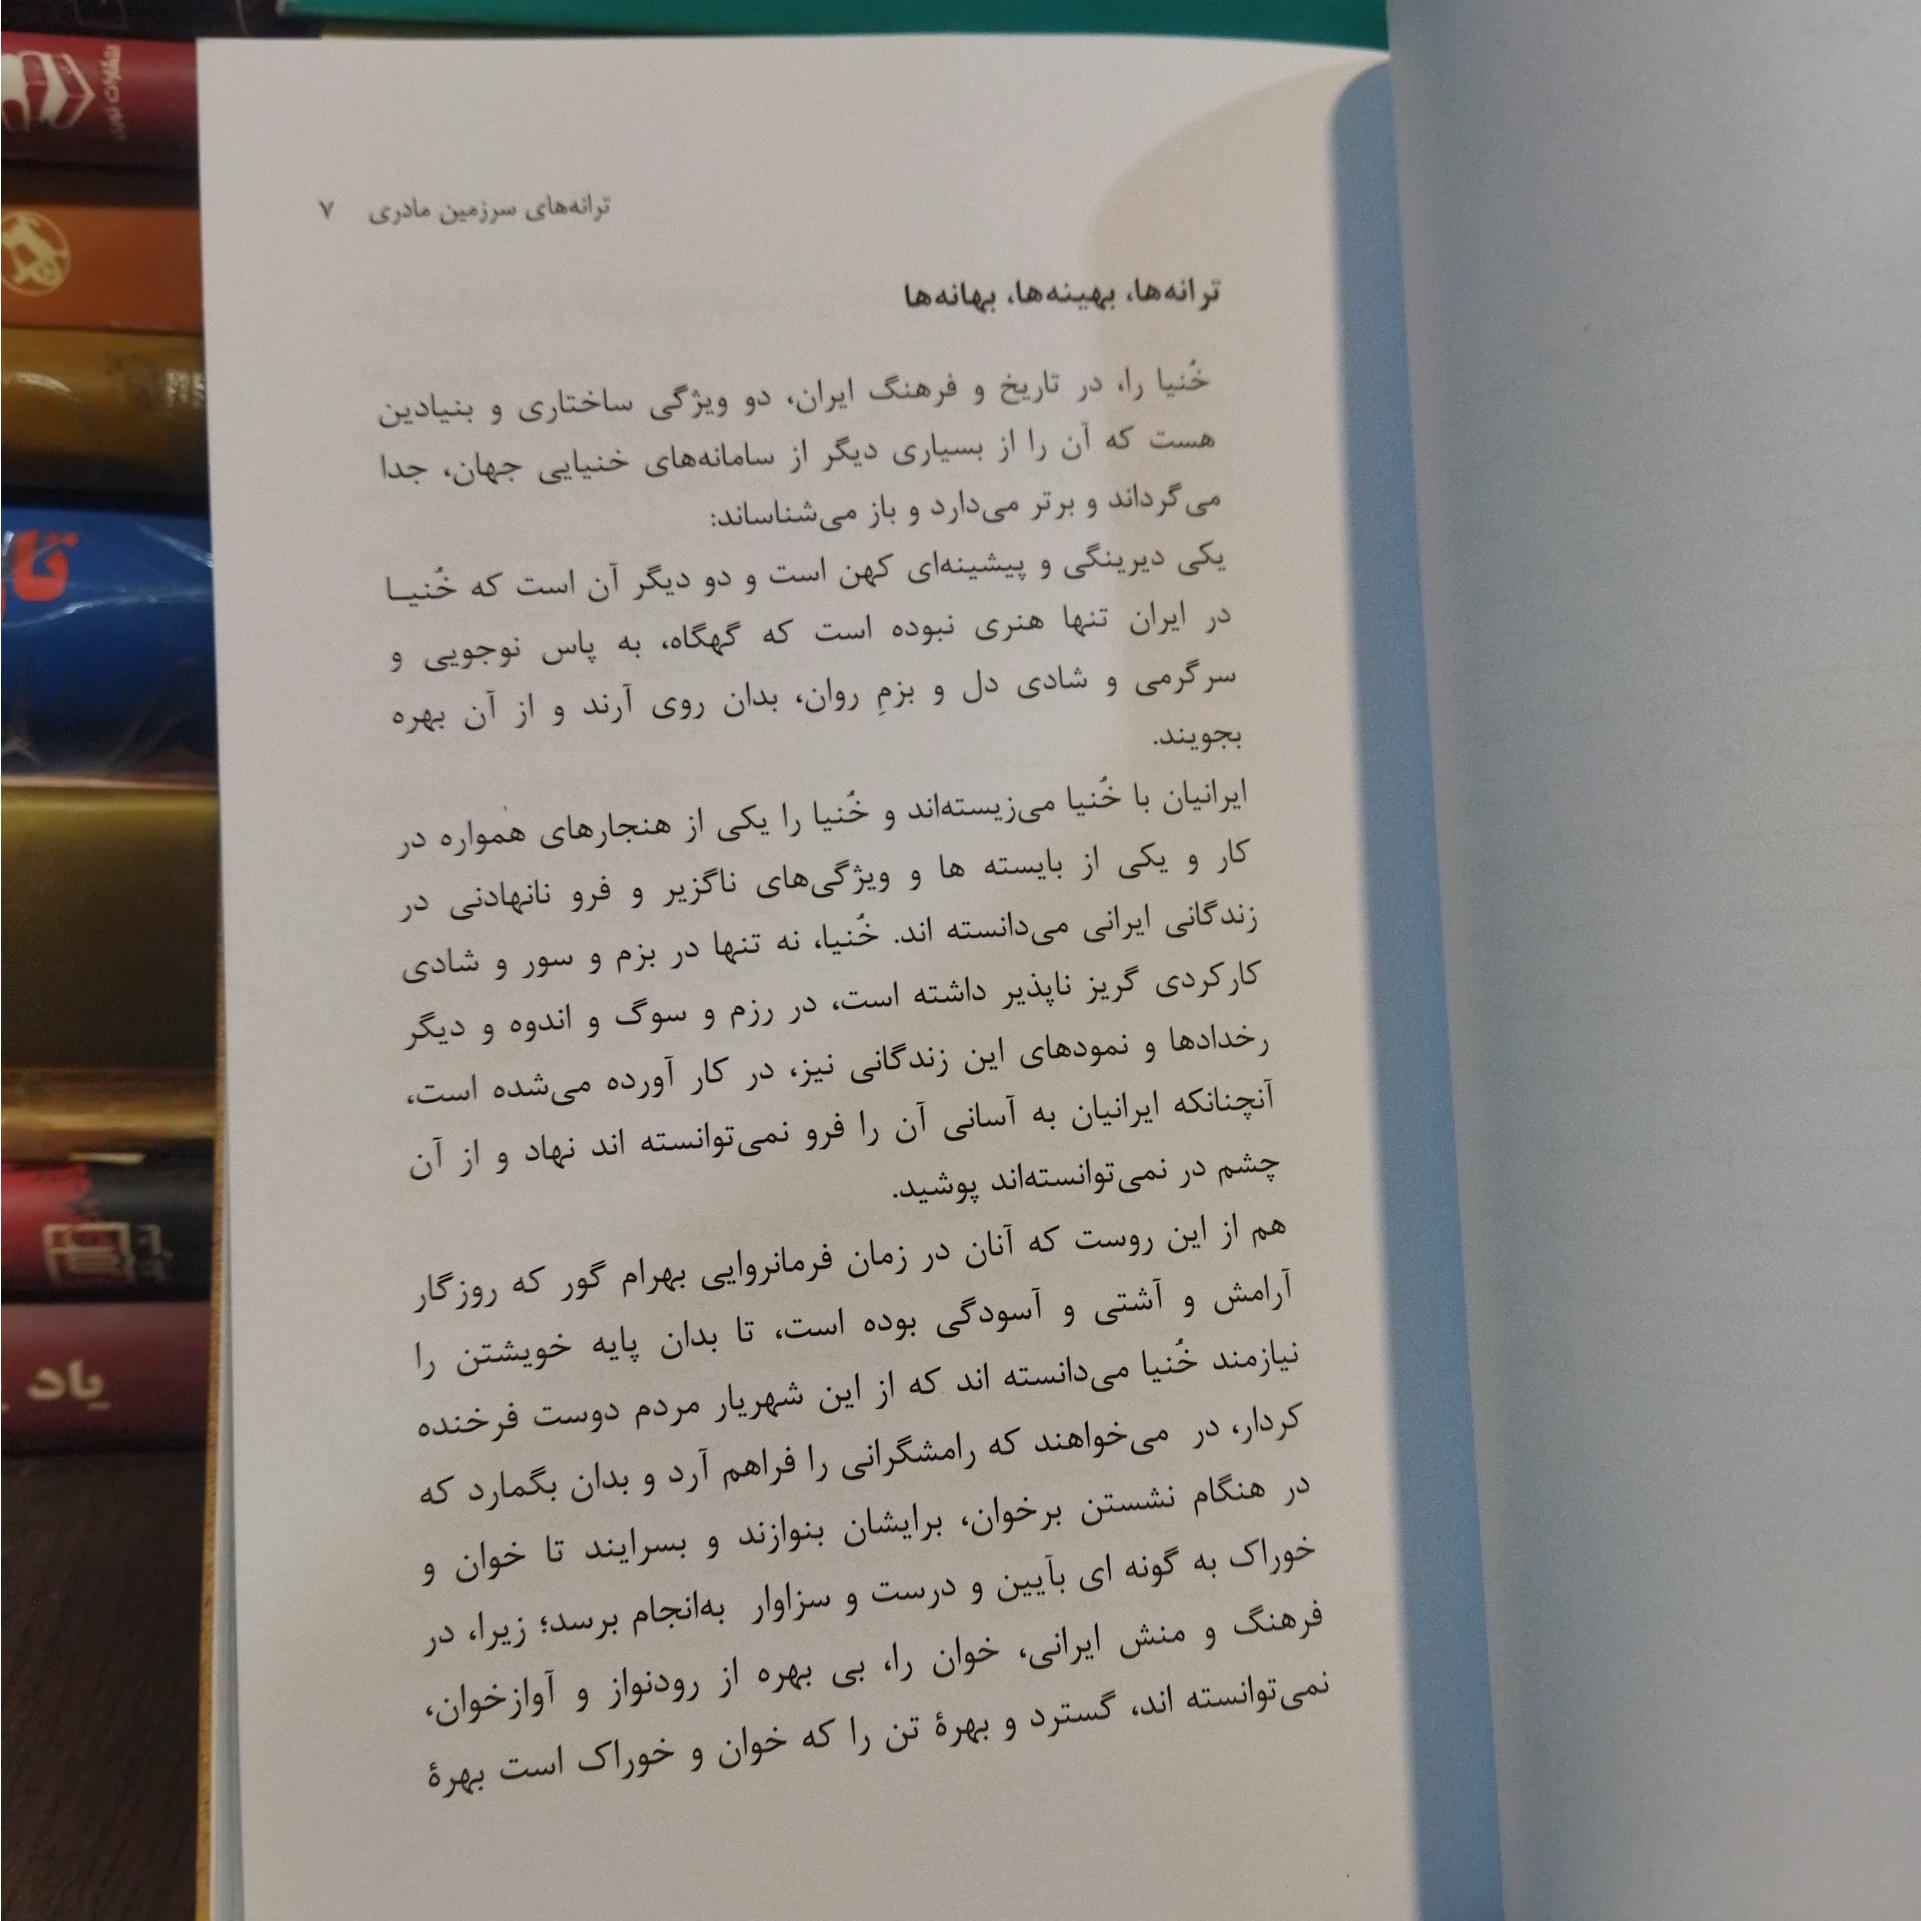 ترانه‌های سرزمین مادری ۷
ترانه‌ها، بهینه‌ها، بهانه‌ها
خُنیا را، در تاریخ و فرهنگ ایران، دو ویژگی ساختاری و بنیادین
هست که آن را از بسیاری دیگر از سامانه‌های خنیایی جهان، جدا
می‌گرداند و برتر می‌دارد و باز می‌شناساند:
یکی دیرینگی و پیشینه‌ای کهن است و دو دیگر آن است که خُنیـا
در ایران تنها هنری نبوده است که گهگاه، به پاس نوجویی و
سرگرمی و شادی دل و بزمِ روان، بدان روی آرند و از آن بهره
بجویند.
ایرانیان با خُنیا می‌زیسته‌اند و خُنیا را یکی از هنجارهای همواره در
کار و یکی از بایسته ها و ویژگی‌های ناگزیر و فرو نانهادنی در
زندگانی ایرانی می‌دانسته اند. خُنیا، نه تنها در بزم و سور و شادی
کارکردی گریز ناپذیر داشته است، در رزم و سوگ و اندوه و دیگر
رخدادها و نمودهای این زندگانی نیز، در کار آورده می‌شده است،
آنچنانکه ایرانیان به آسانی آن را فرو نمی‌توانسته اند نهاد و از آن
چشم در نمی‌توانسته‌اند پوشید.
هم از این روست که آنان در زمان فرمانروایی بهرام گور که روزگار
آرامش و آشتی و آسودگی بوده است، تا بدان پایه خویشتن را
نیازمند خُنیا می‌دانسته اند که از این شهریار مردم دوست فرخنده
کردار، در می‌خواهند که رامشگرانی را فراهم آرد و بدان بگمارد که
در هنگام نشستن برخوان، برایشان بنوازند و بسرایند تا خوان و
خوراک به گونه ای بآیین و درست و سزاوار به‌انجام برسد؛ زیرا، در
فرهنگ و منش ایرانی، خوان را، بی بهره از رودنواز و آوازخوان،
نمی‌توانسته اند، گسترد و بهرهٔ تن را که خوان و خوراک است بهرهٔ
یاد